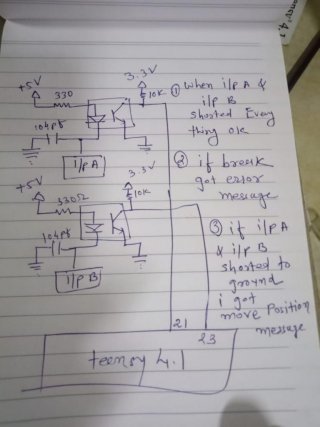 +5V
330
3.3V
10K
104Pf
I/PA
3.3V
10K
+5V
330Ω
104Pf
I/P B
① When i/p A &
i/p B
shorted Every
thing ok
② if break
got error
message
③ if i/p A
& i/p B
shorted to
ground
i got
more Position
message
21
23
teensy 4.1